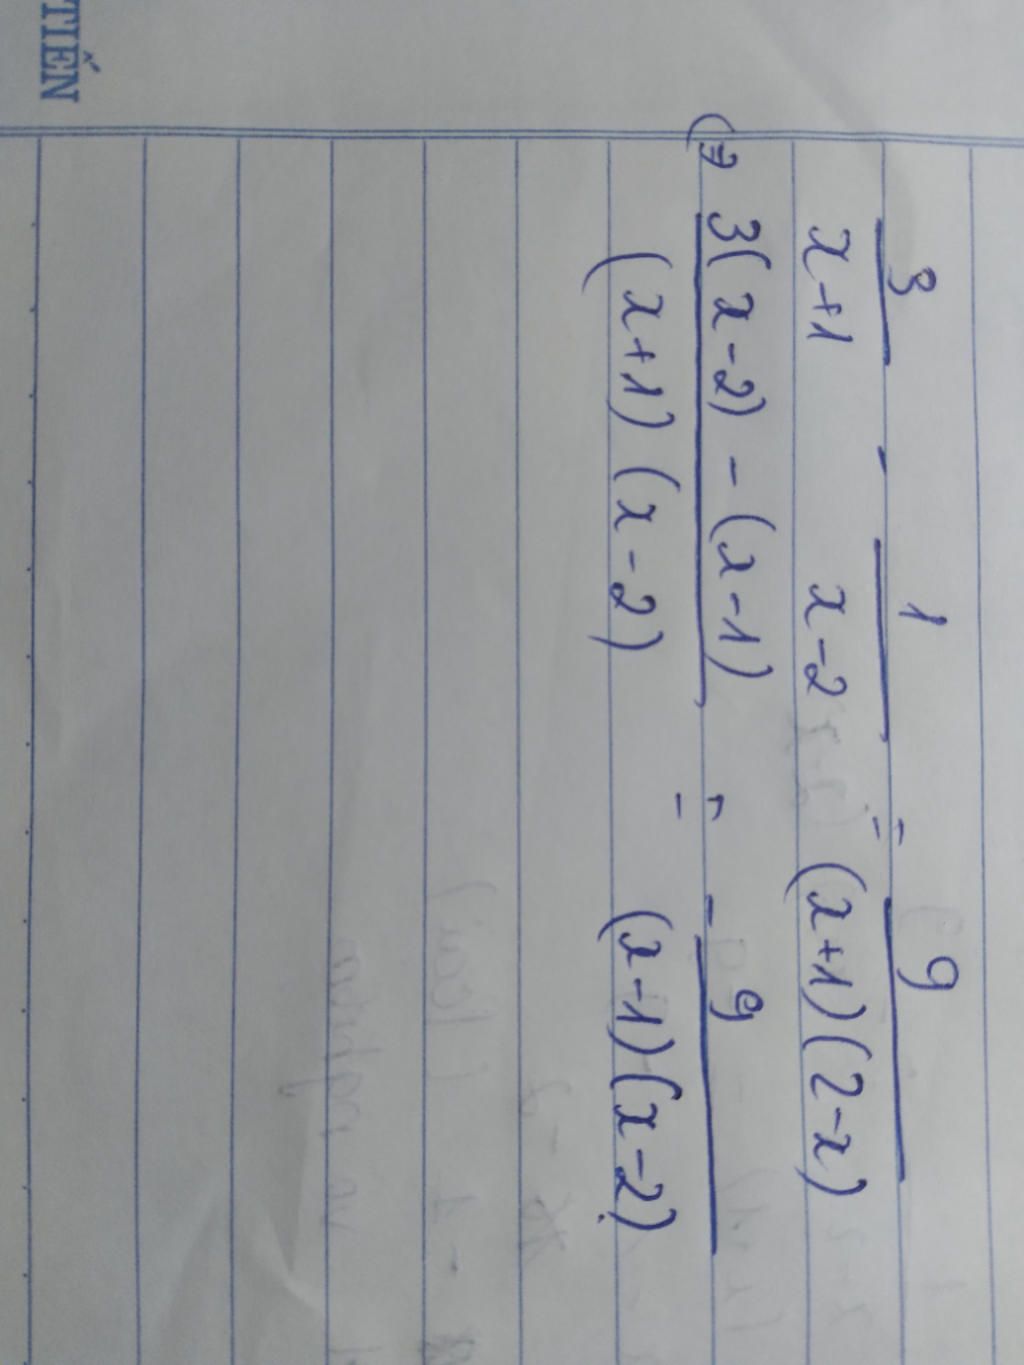 TIẾN
3/(x+1) - 1/(x-2) = 9/((x+1)(2-x))
(=> (3(x-2) - (x-1))/((x+1)(x-2)) = -9/((x-1)(x-2))